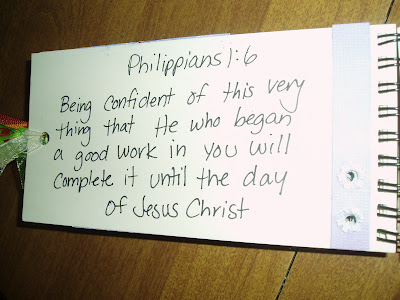 Philippians 1:6
Being Confident of this very
thing that He who began
a good work in you will
Complete it until the day
of Jesus Christ